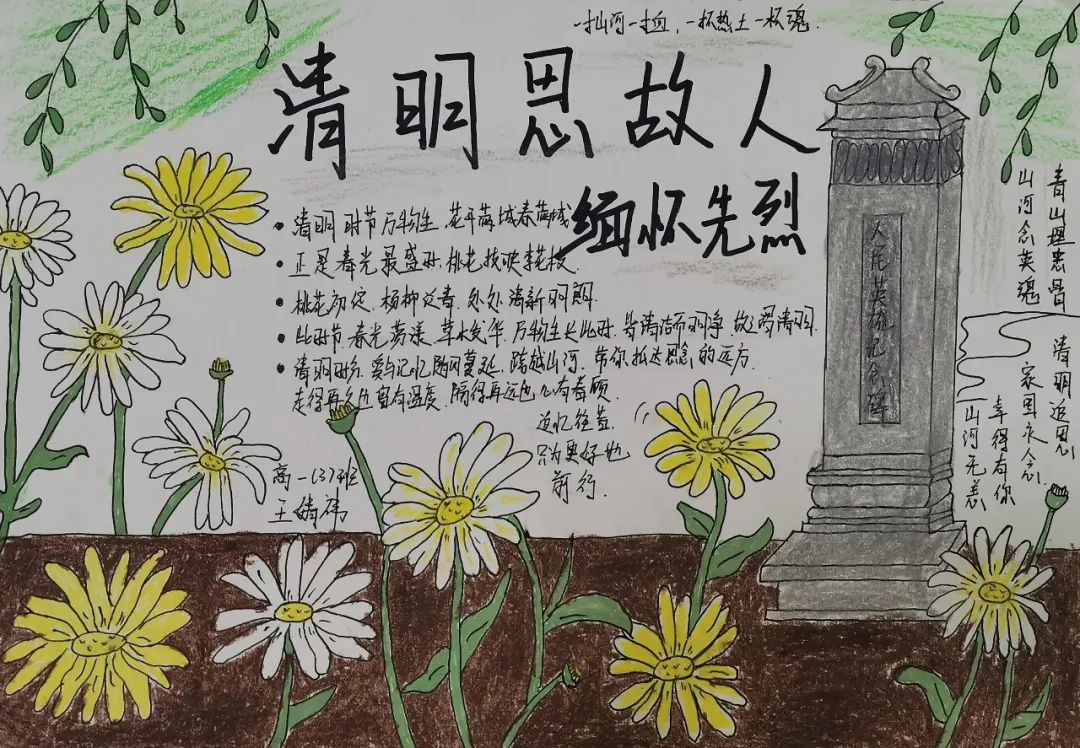 一抔河一抔血，一抔热土一抔魂.
清明思故人
缅怀先烈
清明时节万物生，花开满城春满城
正是春光最盛时，桃花枝映李花枝.
桃花初绽，杨柳泛青，处处清新明朗.
此时节，春光荡漾，草木 万物生长此时，皆清洁而明净，故谓清明.
清明时分，爱与记忆随风蔓延，跨越山河，带你抵达思念的远方
走得再久也留有温度，隔得再远也 有眷顾.
追忆往昔
只为更好地
前行.
高一(3)班
王婧祎
人民英雄纪念碑
青山埋忠骨
山河念英魂
清明追思
家国永念
幸得有你
山河无恙